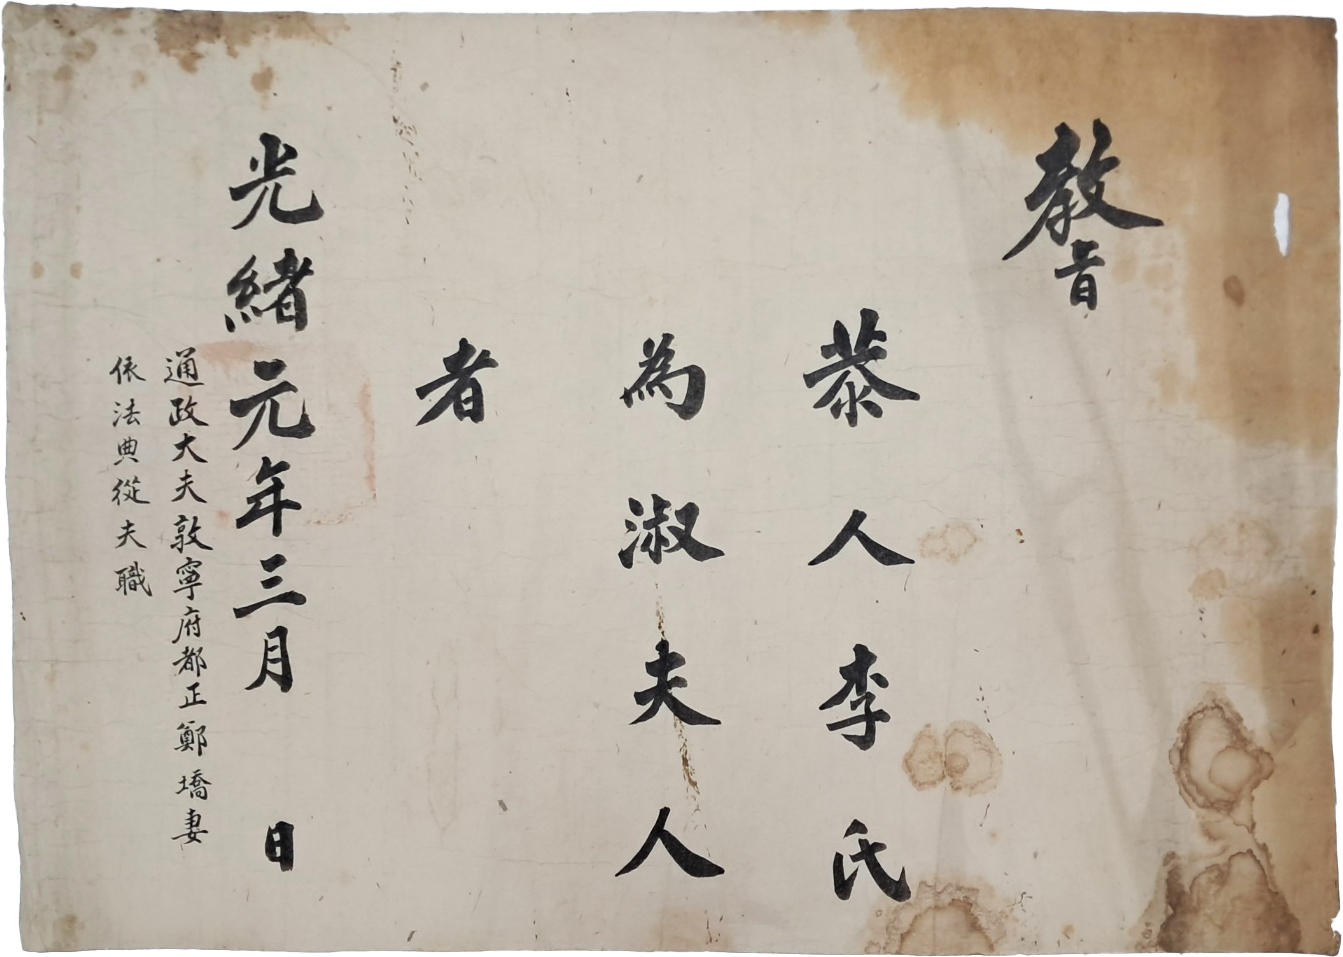 敎旨
恭人李氏
為淑夫人
者
光緒元年三月 日
通政大夫敦寧府都正鄭墧妻
依法典從夫職